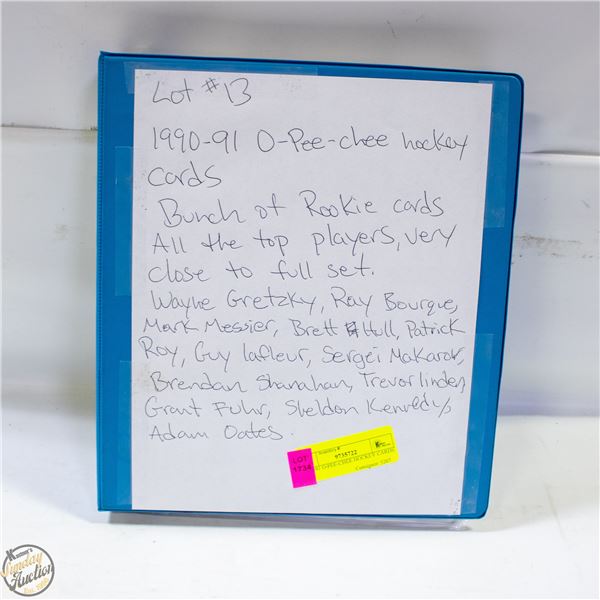 Lot #13
1990-91 O-Pee-chee hockey
cards
Bunch of Rookie cards
All the top players, very
close to full set.
Wayne Gretzky, Ray Bourque,
Mark Messier, Brett Hull, Patrick
Roy, Guy lafleur, Sergei Makarov,
Brendan Shanahan, Trevor linden,
Grant Fuhr, Sheldon Kennedy,
Adam Oates.
LOT
5734
9735722
O-PEE-CHEE HOCKEY CARDS
Consignor
Kastner's
Sunday
Auction